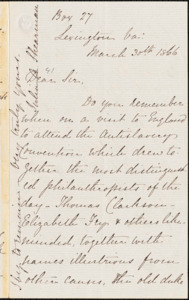 Box 27
Lexington Va:
March 30th 1866
Dear Sir.
Do you remember
when on a visit to England
to attend the Antislavery
Convention which drew to-
gether the most distinguish-
ed philanthropists of the
day - Thomas Clarkson -
Elizabeth Fry & others like
minded, together with
names illustrious from
other causes. the old duke
very truly yours